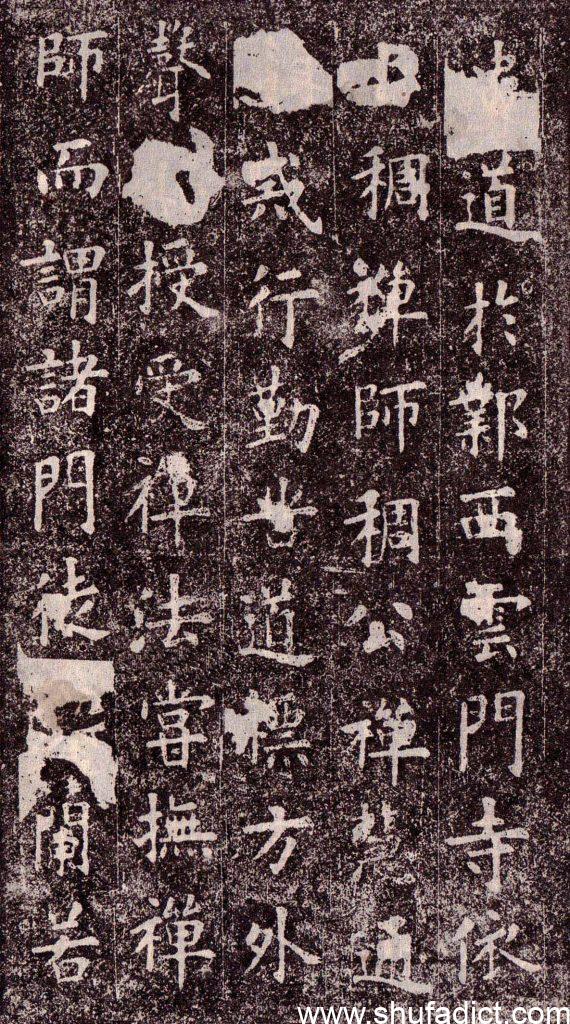 道於鄴西雲門寺依
稠禪師稠公禪慧通
戒行勤苦道標方外
聲授受禪法嘗撫禪
師而謂諸門徒闌若
www.shufadict.com